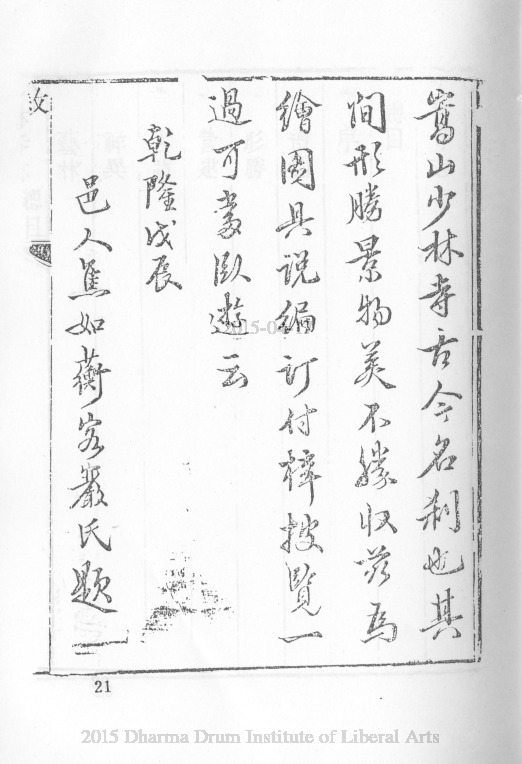 嵩山少林寺古今名刹也其
间形勝景物美不勝収茲為
繪圖具说编订付梓披覧一
過可當臥遊云
乾隆戊辰
邑人焦如蘅客巖氏题
21
2015 Dharma Drum Institute of Liberal Arts